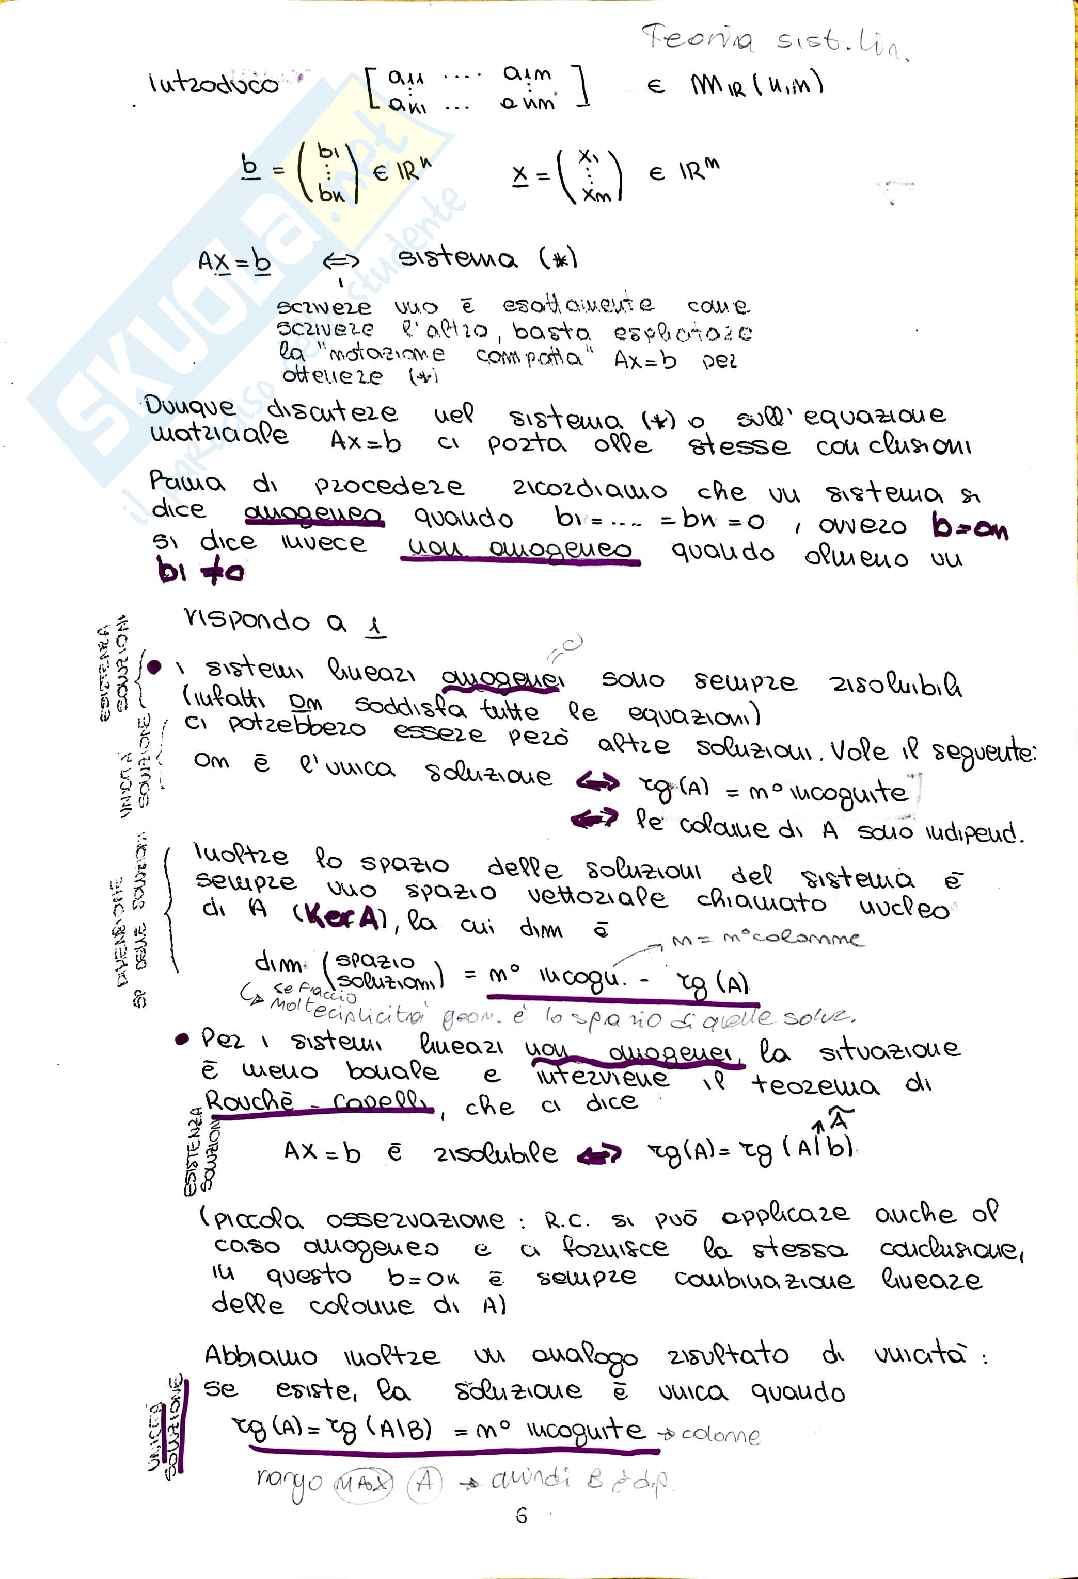 Teoria sist. lin.
Introduco [ a11 .... a1m ] ∈ MIR(n,m)
[ an1 ... anm ]
b = ( b1 ⋮ bn ) ∈ IRⁿ x = ( x1 ⋮ xm ) ∈ IRᵐ
Ax = b ⇔ sistema (*)
scrivere uno è esattamente come
scrivere l'altro, basta esplicitare
la "notazione compatta" Ax=b per
ottenere (*)
Dunque discutere nel sistema (*) o sull'equazione
matriciale Ax=b ci porta alle stesse conclusioni
Prima di procedere ricordiamo che un sistema si
dice omogeneo quando b1=....=bn=0, ovvero b=0n
si dice invece non omogeneo quando almeno un
bi ≠0
rispondo a 1
ESISTENZA SOLUZIONI
=0
• i sistemi lineari omogenei sono sempre risolubili
(infatti 0m soddisfa tutte le equazioni)
UNICITÀ SOLUZIONE
ci potrebbero essere però altre soluzioni. Vale il seguente:
0m è l'unica soluzione ⇔ rg(A) = n° incognite
⇔ le colonne di A sono indipend.
DIMENSIONE SP DELLE SOLUZIONI
Inoltre lo spazio delle soluzioni del sistema è
sempre uno spazio vettoriale chiamato nucleo
di A (KerA), la cui dim è
→ m = n° colonne
dim (spazio soluzioni) = n° incogn. - rg(A)
↳ se faccio
molteciplicità geom. è lo spazio di quelle solve.
• Per i sistemi lineari non omogenei, la situazione
è meno banale e interviene il teorema di
Rouchè - Capelli, che ci dice
ESISTENZA SOLUZIONI
Ã
Ax=b è risolubile ⇔ rg(A)= rg(A|b)
(piccola osservazione: R.C. si può applicare anche al
caso omogeneo e ci fornisce la stessa conclusione,
in questo b=0n è sempre combinazione lineare
delle colonne di A)
Abbiamo inoltre un analogo risultato di unicità:
UNICITÀ SOLUZIONE
se esiste, la soluzione è unica quando
rg(A)= rg(A|B) = n° incognite → colonne
rango MAX A → quindi B è dip.
6
SKUOLA.net
il paradiso dello studente